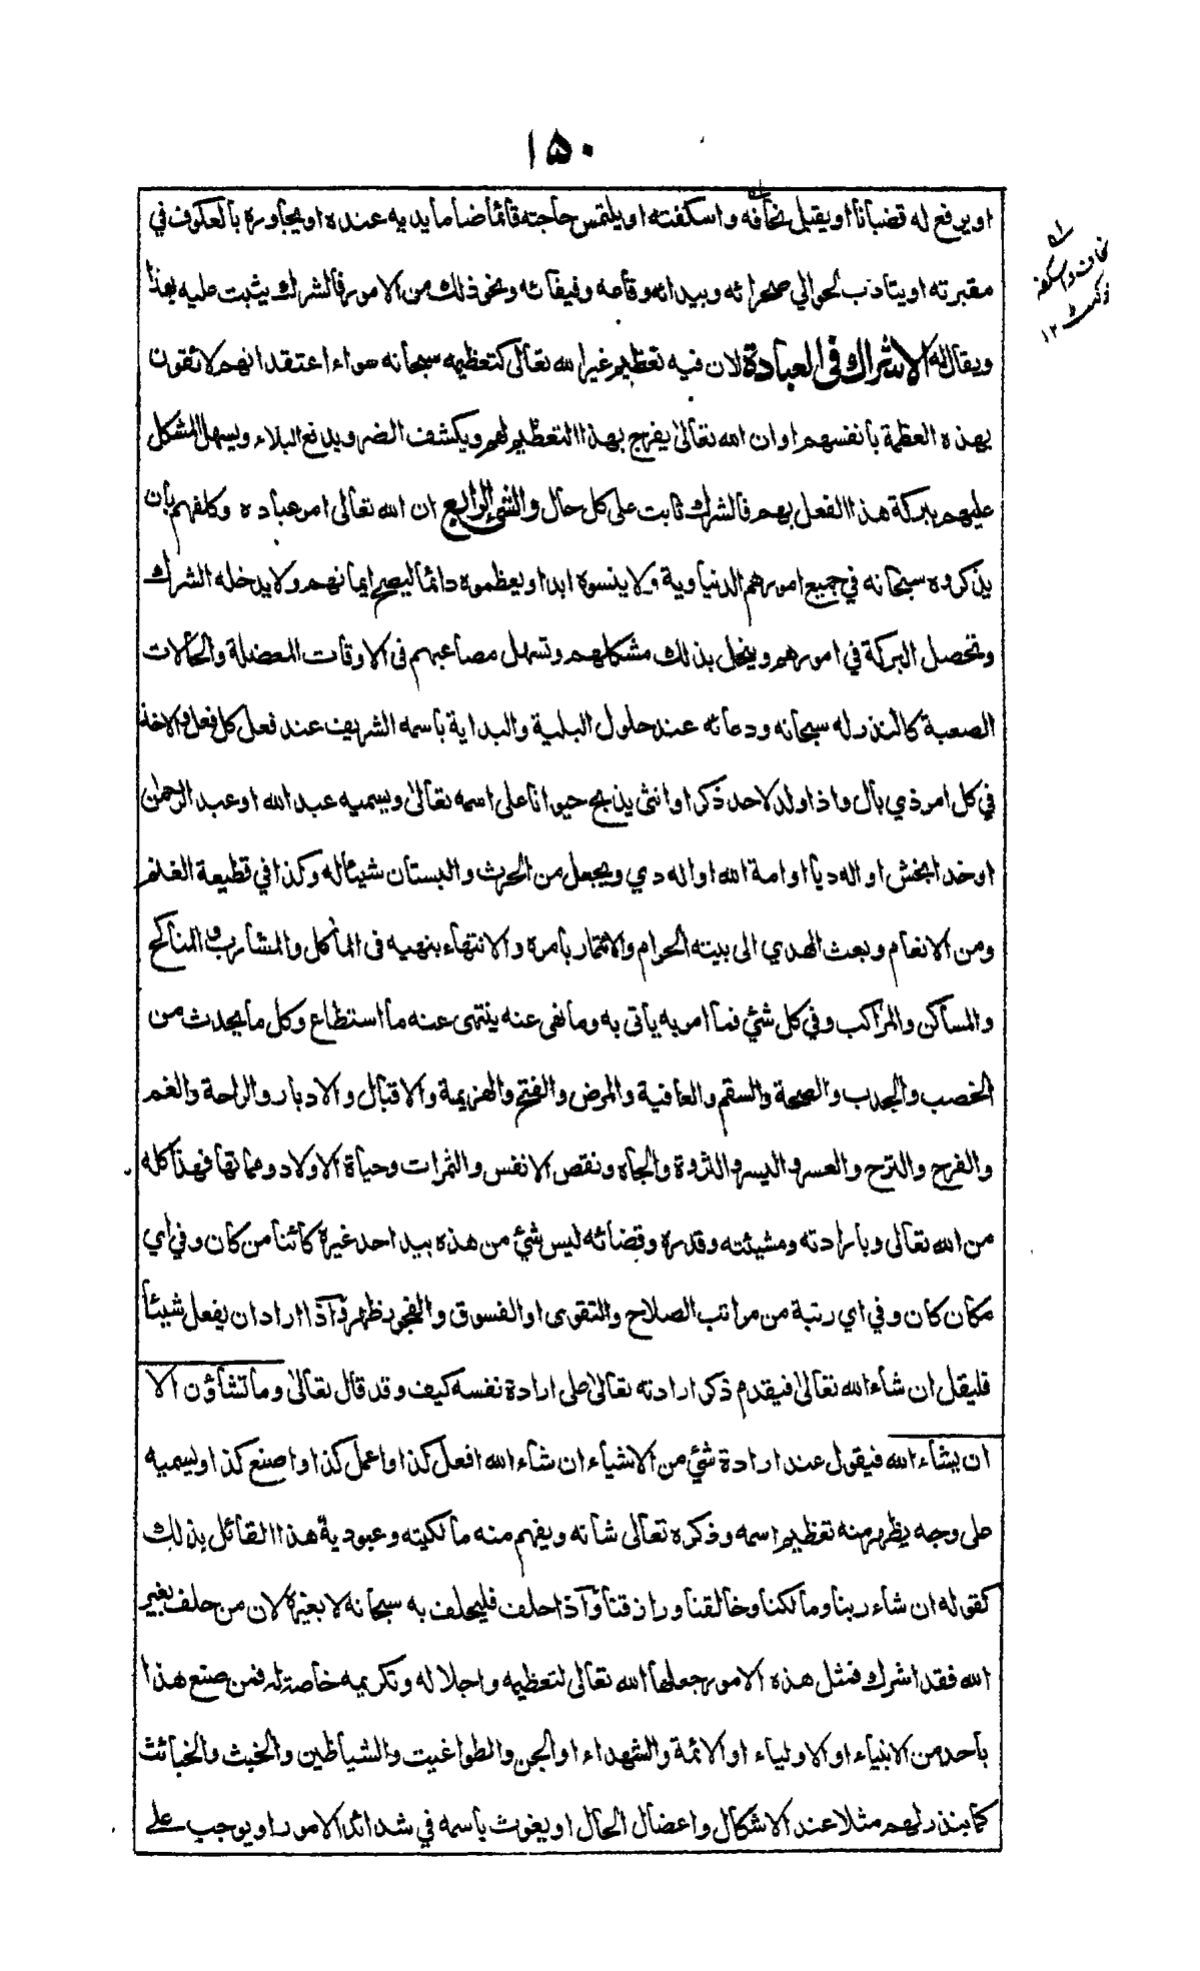 ١٥٠
او يرفع له قضبانا او يقبل نحافه واسكفته او يلتمس حاجته قائما ضاما يديه عنده او يجاوره بالعكوف في
مقبرته او يتادب لحوالي صحرائه وبيدائه وقاعه وفيفائه ونحو ذلك من الامور فالشرك يثبت عليه بهذا
ويقال له الاشراك في العبادة لان فيه تعظيم غير الله تعالى كتعظيمه سبحانه سواء اعتقد انهم لائقون
بهذه العظمة بانفسهم او ان الله تعالى يفرج بهذا التعظيم لهم ويكشف الضر ويدفع البلاء ويسهل المشكل
عليهم ببركة هذا الفعل بهم فالشرك ثابت على كل حال والشئ الرابع ان الله تعالى امر عباده وكلفهم بان
يذكروه سبحانه في جميع امورهم الدنياوية ولا ينسوه ابدا ويعظموه دائما ليصح ايمانهم ولا يدخله الشرك
وتحصل البركة في امورهم وينحل بذلك مشكلهم وتسهل مصاعبهم فى الاوقات المعضلة والحالات
الصعبة كالنذر له سبحانه ودعائه عند حلول البلية والبداية باسمه الشريف عند فعل كل فعل والاخذ
في كل امر ذي بال واذا ولد لاحد ذكر او انثى يذبح حيوانا على اسمه تعالى ويسميه عبد الله او عبد الرحمن
او خدا بخش او اله ديا او امة الله او اله دي ويجعل من الحرث والبستان شيئا له وكذا في قطيعة الغنم
ومن الانعام وبعث الهدي الى بيته الحرام والائتمار بامره والانتهاء بنهيه فى المأكل والمشارب والمناكح
والمساكن والمراكب وفي كل شئ فما امر به ياتى به وما نهى عنه ينتهى عنه ما استطاع وكل ما يحدث من
الخصب والجدب والصحة والسقم والعافية والمرض والفتح والهزيمة والاقبال والادبار والراحة والغم
والفرح والترح والعسر واليسر والثروة والجاه ونقص الانفس والثمرات وحياة الاولاد ومماتها فهذا كله
من الله تعالى وبارادته ومشيئته وقدره وقضائه ليس شئ من هذه بيد احد غيره كائنا من كان وفي اي
مكان كان وفي اي رتبة من مراتب الصلاح والتقوى او الفسوق والفجور ظهر فاذا اراد ان يفعل شيئا
فليقل ان شاء الله تعالى فيقدم ذكر ارادته تعالى على ارادة نفسه كيف وقد قال تعالى وما تشاؤن الا
ان يشاء الله فيقول عند ارادة شئ من الاشياء ان شاء الله افعل كذا او اعمل كذا او اصنع كذا او يسميه
على وجه يظهر منه تعظيم اسمه وذكره تعالى شانه ويفهم منه مالكيته وعبودية هذا القائل بذلك
كقوله ان شاء ربنا ومالكنا وخالقنا ورازقنا واذا حلف فليحلف به سبحانه لا بغيره لان من حلف بغير
الله فقد اشرك فمثل هذه الامور جعلها الله تعالى لتعظيمه واجلاله وتكريمه خاصة له فمن صنع هذا
باحد من الانبياء او الاولياء او الائمة والشهداء او الجن والطواغيت والشياطين والخبث والخبائث
كما ينذر لهم مثلا عند الاشكال واعضال الحال او يغوث باسمه في شدائد الامور او يوجب على
نحاف واسكفه
١٢